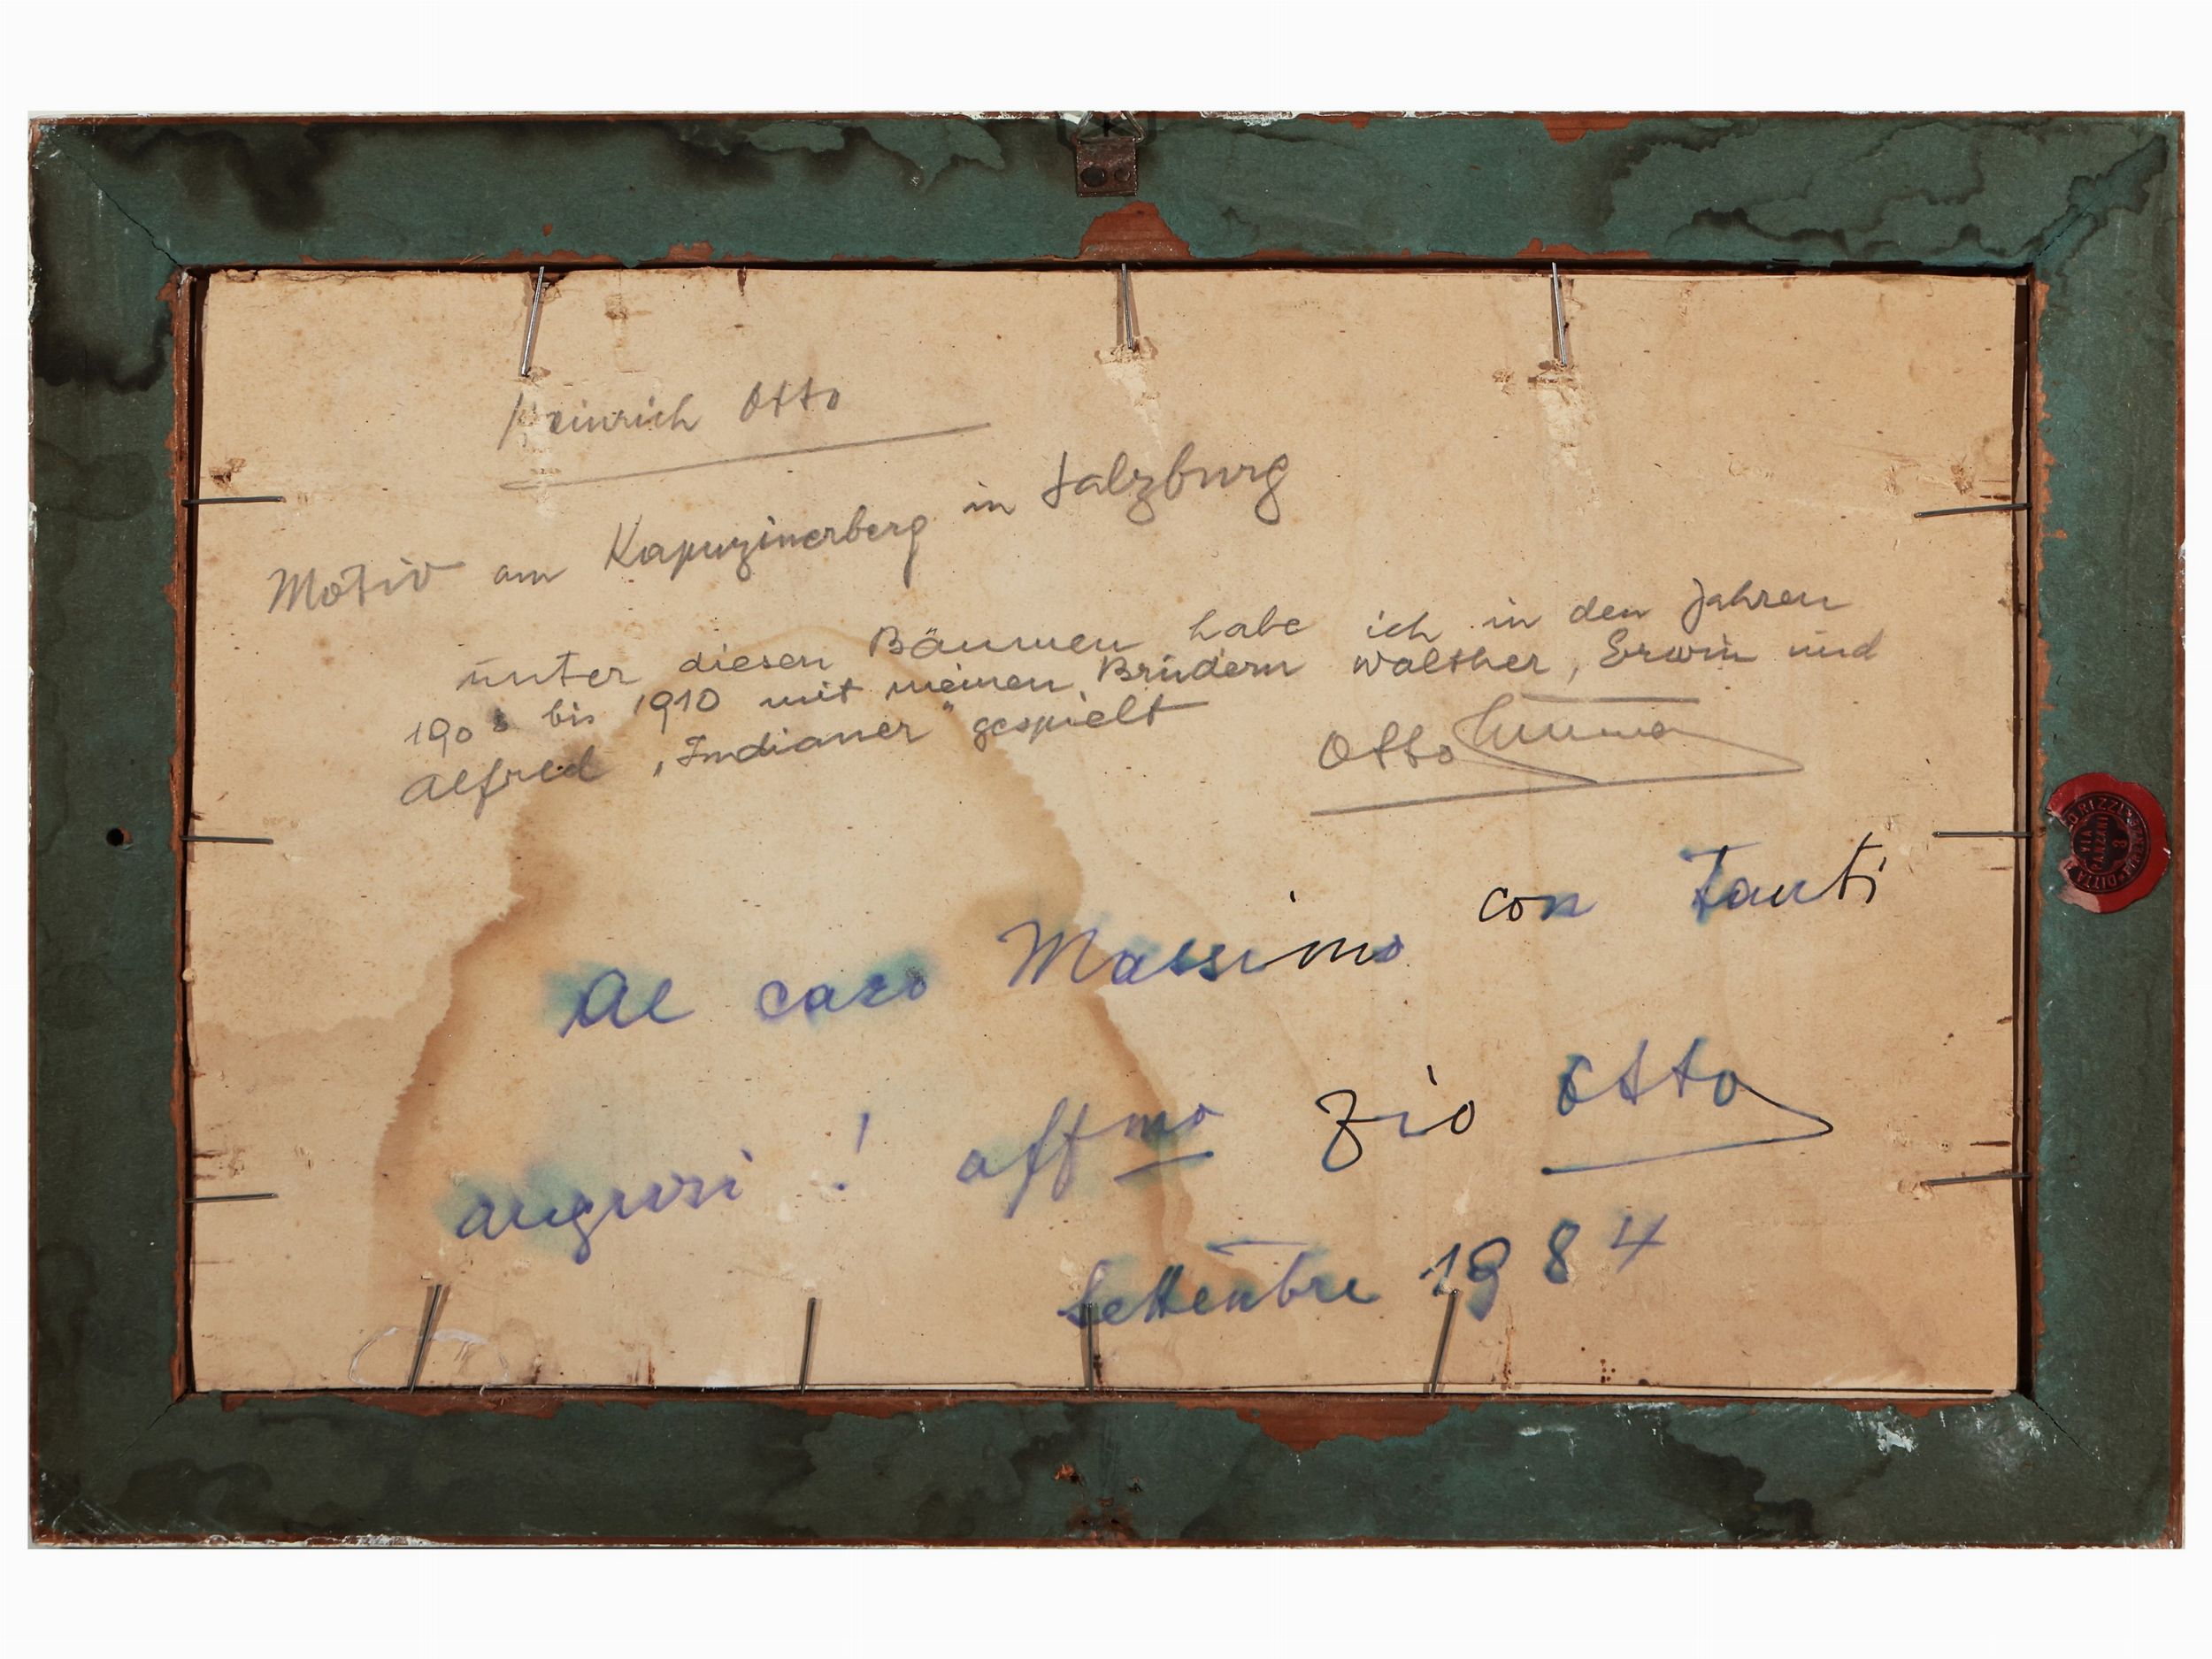 Heinrich Otto
Motiv am Kapuzinerberg in Salzburg
unter diesen Bäumen habe ich in den Jahren
1908 bis 1910 mit meinen Brüdern Walther, Erwin und
Alfred „Indianer" gespielt
Otto
Al caro Massimo con tanti
auguri! affmo zio Otto
Settembre 1984
DITTA
VIA
8